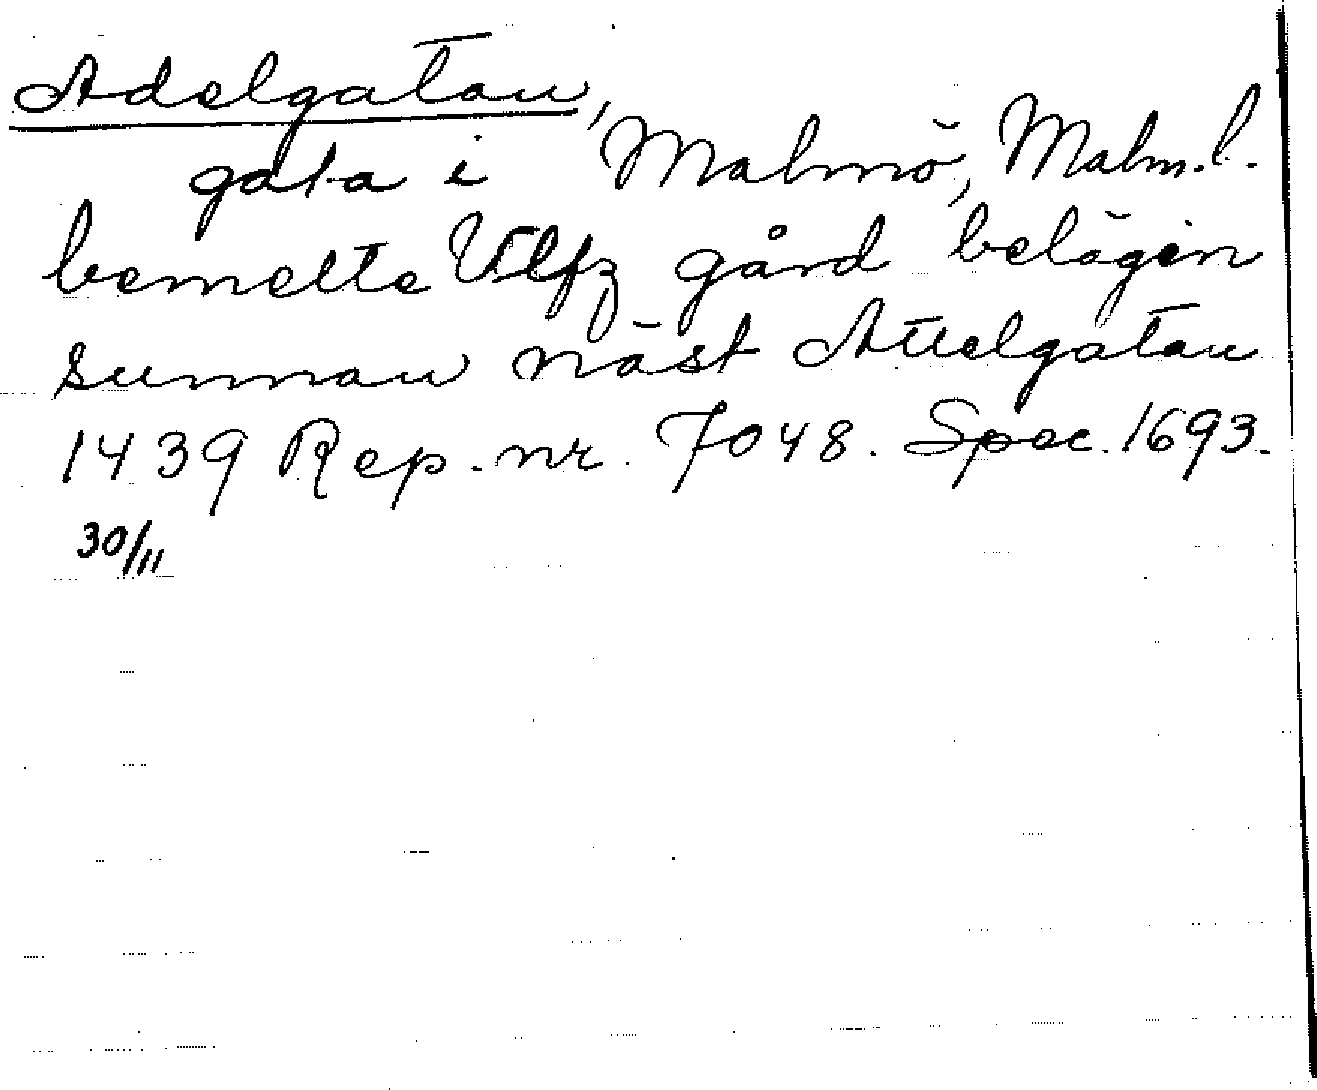 Adelgatan,
gata i Malmö, Malm. l.
bemelte Ulfz gård belägin
sunnan näst Attelgatan
1439 Rep. nr. 7048. Spec. 1693.
30/11